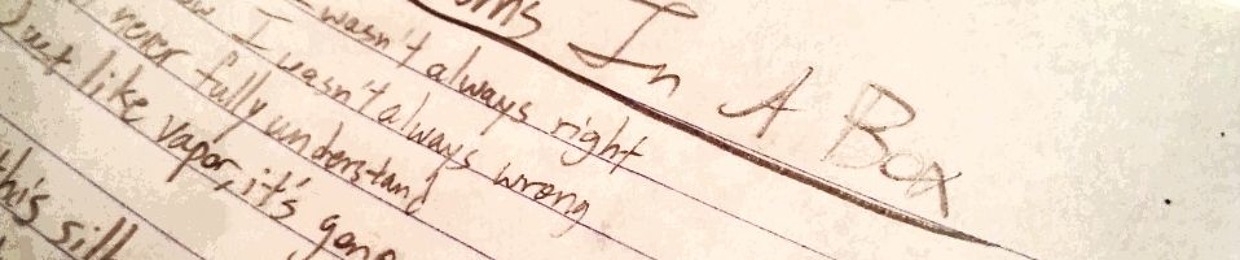 In A Box
wasn't always right
I wasn't always wrong
never fully understand
Just like vapor, it's gone
this